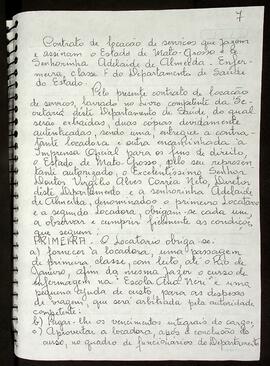 7
Contrato de locacao de servicos que fazem
e assinam o Estado de Mato-Grosso e a
Senhorinha Adelaide de Almeida - Enfer-
meira, classe F do Departamento de Saúde
do Estado.
Pelo presente contrato de locacão
de servicos, lavrado no livro competente da Se-
cretaria deste Departamento de Saúde, do qual
serão extraidos, duas copias devidamente
autenticadas, sendo uma entregue a contra-
tante locadora e outra encaminhada a
Imprensa Oficial para os fins de direito,
o Estado de Mato Grosso, pelo seu represen
tante autorizado, o Excelentissimo Senhor
Doutor Virgilio Alves Corrêa Neto, Diretor
deste Departamento e a senhorinha Adelaide
de Almeida, denominados o primeiro Locatario
e a segunda locadora, obrigam-se cada um
a observar e cumprir fielmente as condições
que seguem:
PRIMEIRA - O Locatario obriga-se
a) fornecer á locadora, uma passagem
de primeira classe, com leito, até o Rio de
Janeiro, afim da mesma fazer o curso de
enfermagem na "Escola Ana Neri" e uma
pequena ajuda de custo para as despesas
de viagem, que será arbitrada pela autoridade
competente;
b) Pagar-lhe os vencimentos integrais do cargo;
c) Aproveitar a locadora, após a conclusão do
curso, no quadro de funcionarios do Departamento